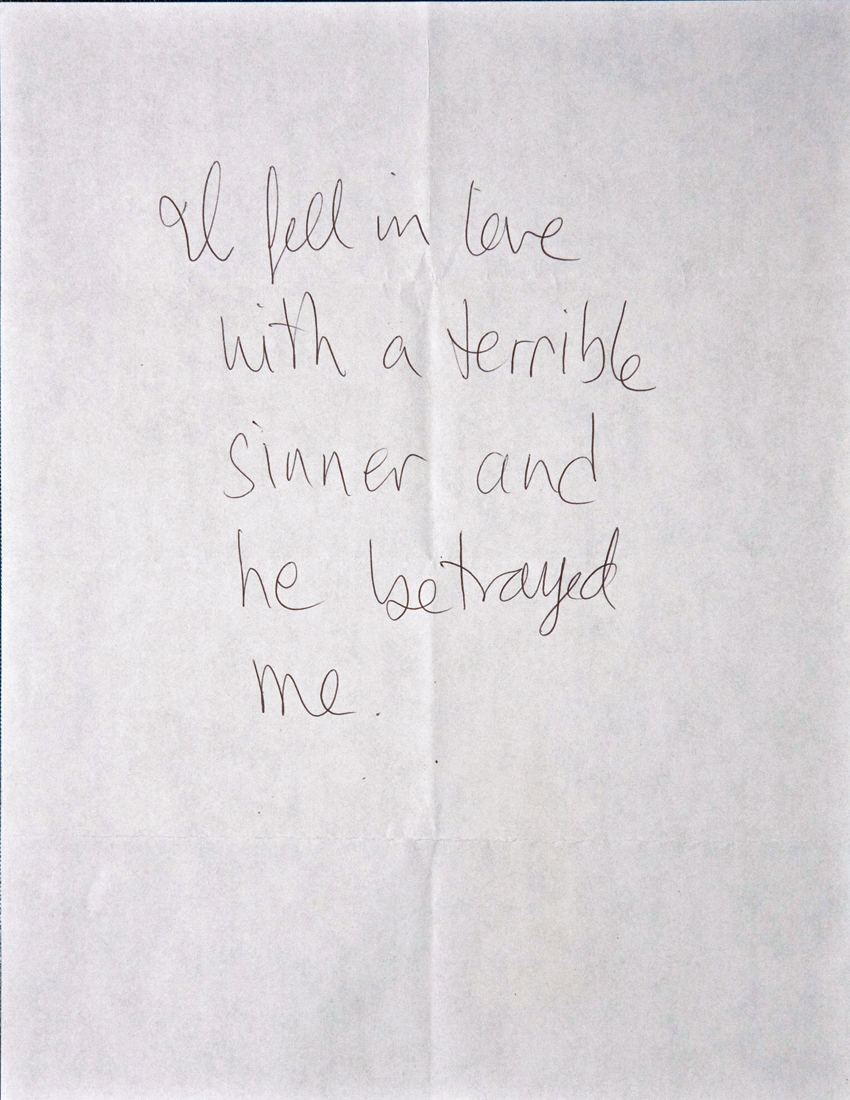 I fell in love
with a terrible
sinner and
he betrayed
me.